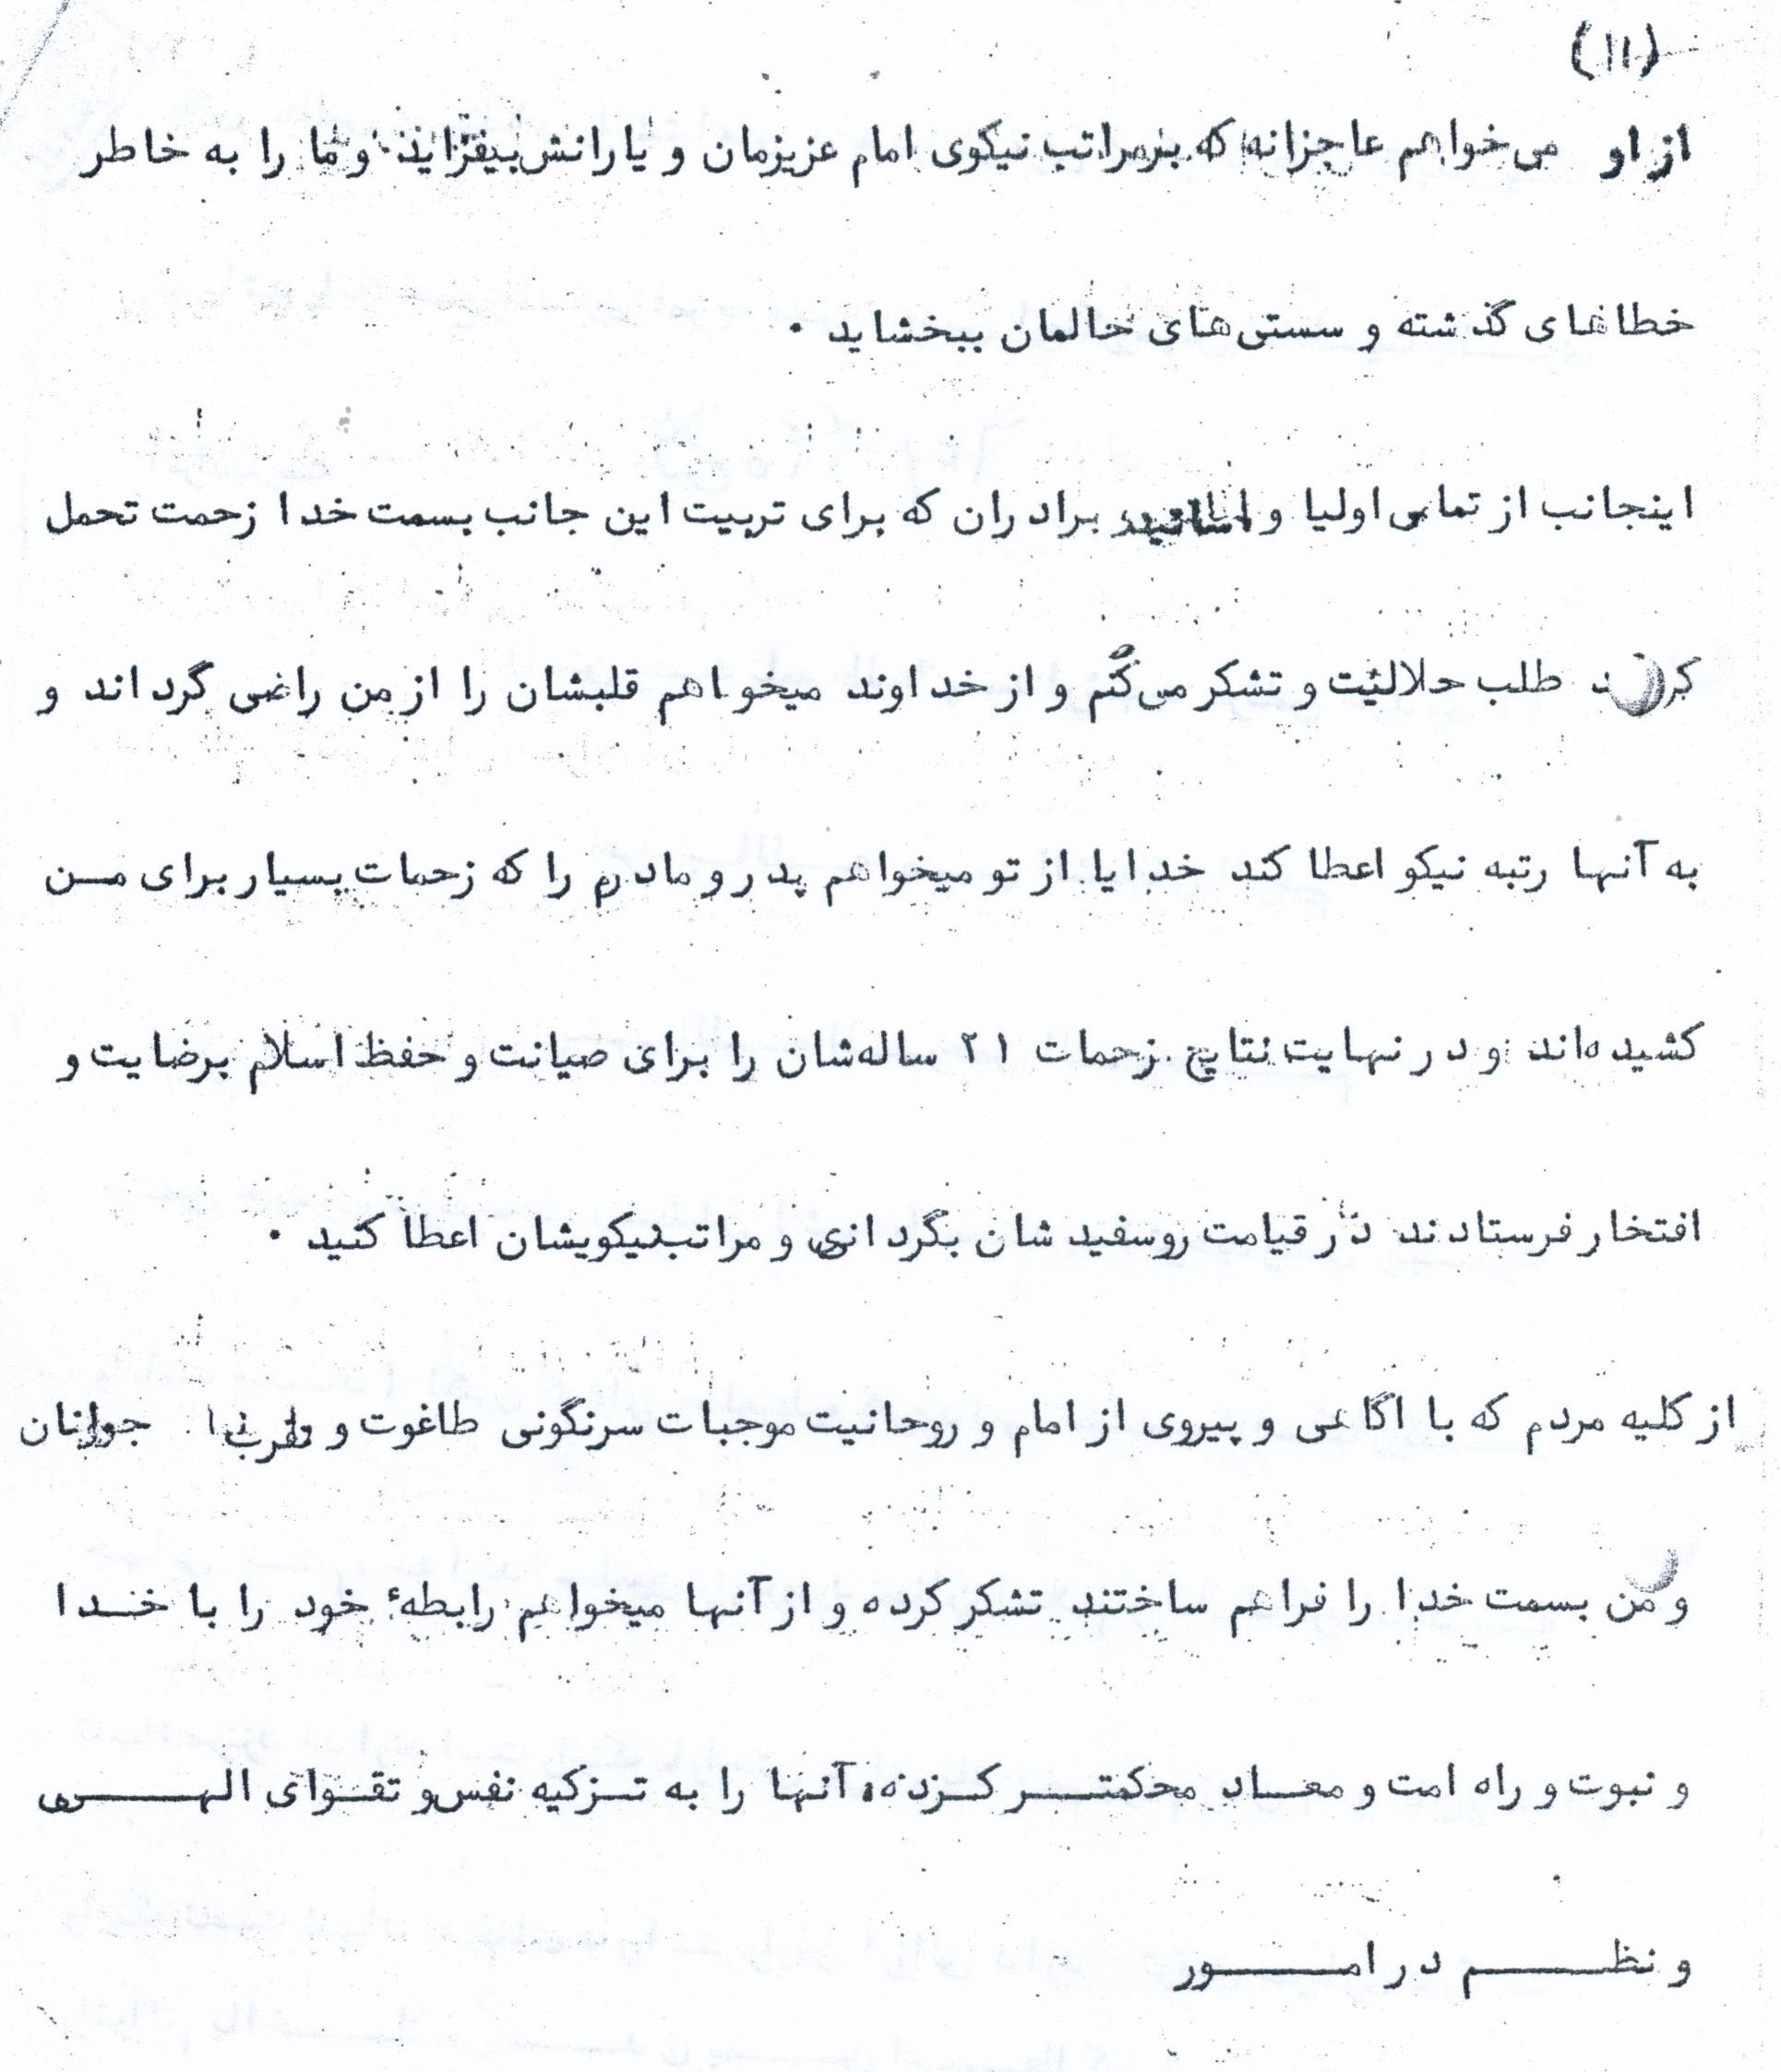 (۱۱)
از او می‌خواهم عاجزانه که برمراتب نیکوی امام عزیزمان و یارانش بیفزاید و ما را به خاطر
خطاهای گذشته و سستی‌های حالمان ببخشاید .
اینجانب از تمامی اولیا و اساتید برادران که برای تربیت این جانب بسمت خدا زحمت تحمل
طلب حلالیت و تشکر می‌کنم و از خداوند میخواهم قلبشان را از من راضی گرداند و
به آنها رتبه نیکو اعطا کند خدایا از تو میخواهم پدر و مادرم را که زحمات بسیار برای من
کشیده‌اند و در نهایت نتایج زحمات ۲۱ ساله‌شان را برای صیانت و حفظ اسلام برضایت و
افتخار فرستادند در قیامت روسفید شان بگردانی و مراتب نیکویشان اعطا کنید .
از کلیه مردم که با آگاهی و پیروی از امام و روحانیت موجبات سرنگونی طاغوت و جوانان
و من بسمت خدا را فراهم ساختند تشکر کرده و از آنها میخواهم رابطهٔ خود را با خدا
و نبوت و راه امت و معاد محکمتر کرده، آنها را به تزکیه نفس و تقوای الهی
و نظم در امور